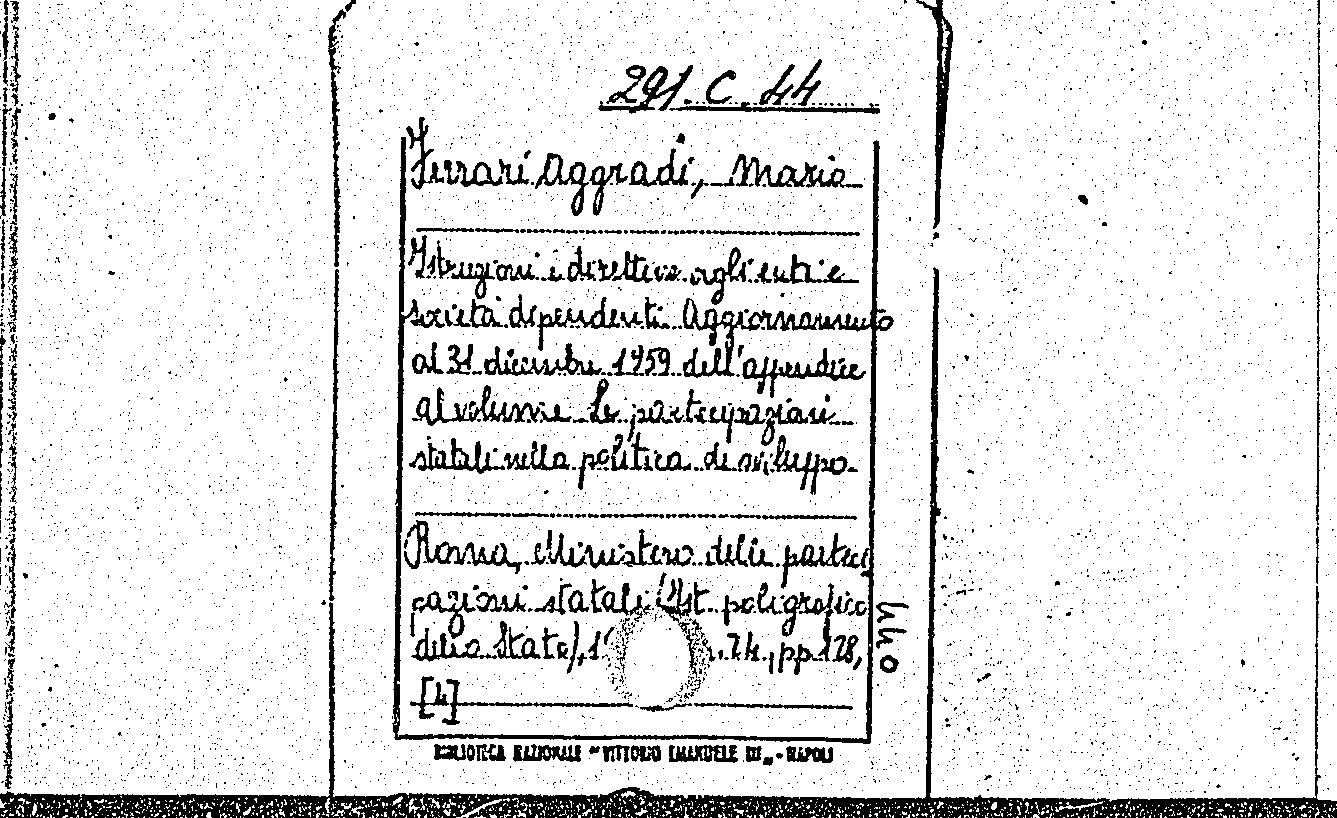 291.C.44
Ferrari Aggradi, Mario
Istruzioni e direttive agli enti e
società dipendenti. Aggiornamento
al 31 dicembre 1959 dell'appendice
al volume Le partecipazioni
statali nella politica di sviluppo.
Roma, Ministero delle parteci
pazioni statali (Ist. poligrafico
dello Stato), 1 24, pp. 128,
[4]
440
BIBLIOTECA NAZIONALE "VITTORIO EMANUELE III" - NAPOLI